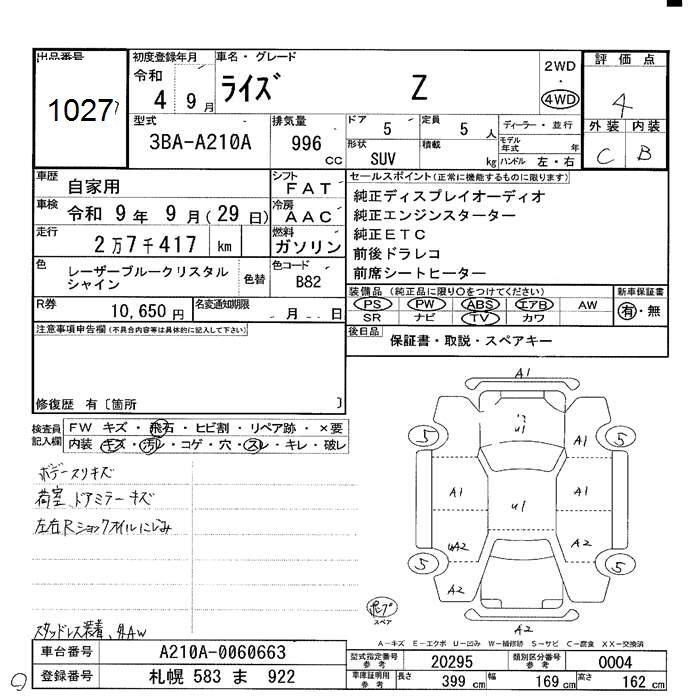 出品番号
1027
初度登録年月
令和 4年 9月
車名・グレード
ライズ Z
2WD
・
4WD
評価点
4
外装 内装
C B
型式
3BA-A210A
排気量
996 cc
ドア 5
定員 5 人
形状 SUV
積載 kg
ディーラー・並行
モデル年式 年
ハンドル 左・右
車歴 自家用
シフト FAT
車検 令和 9 年 9 月 ( 29 日)
冷房 AAC
走行 2万7千417 km
燃料 ガソリン
色 レーザーブルークリスタル
シャイン
色替
色コード B82
R券 10,650 円
名変通知期限 月 日
セールスポイント(正常に機能するものに限ります)
純正ディスプレイオーディオ
純正エンジンスターター
純正ETC
前後ドラレコ
前席シートヒーター
装備品(純正品に限り○をつけてください)
PS PW ABS エアB AW
SR ナビ TV カワ
新車保証書
有・無
後日品
保証書・取説・スペアキー
注意事項申告欄(不具合内容等は具体的に記入して下さい)
修復歴 有〔箇所 〕
検査員記入欄
FW キズ・飛石・ヒビ割・リペア跡・×要
内装 キズ・汚レ・コゲ・穴・スレ・キレ・破レ
ボデースリキズ
荷室、ドアミラーキズ
左右Rショックオイルにじみ
スタッドレス装着、外AW
A1
U1
5
5
A1
A1
U1
UA2
A2
5
5
A2
A2
スペア
A-キズ E-エクボ U-凹み W-補修跡 S-サビ C-腐食 XX-交換済
車台番号 A210A-0060663
登録番号 札幌 583 ま 922
型式指定番号 参考 20295
類別区分番号 参考 0004
車庫証明用 参考 長さ 399 cm 幅 169 cm 高さ 162 cm